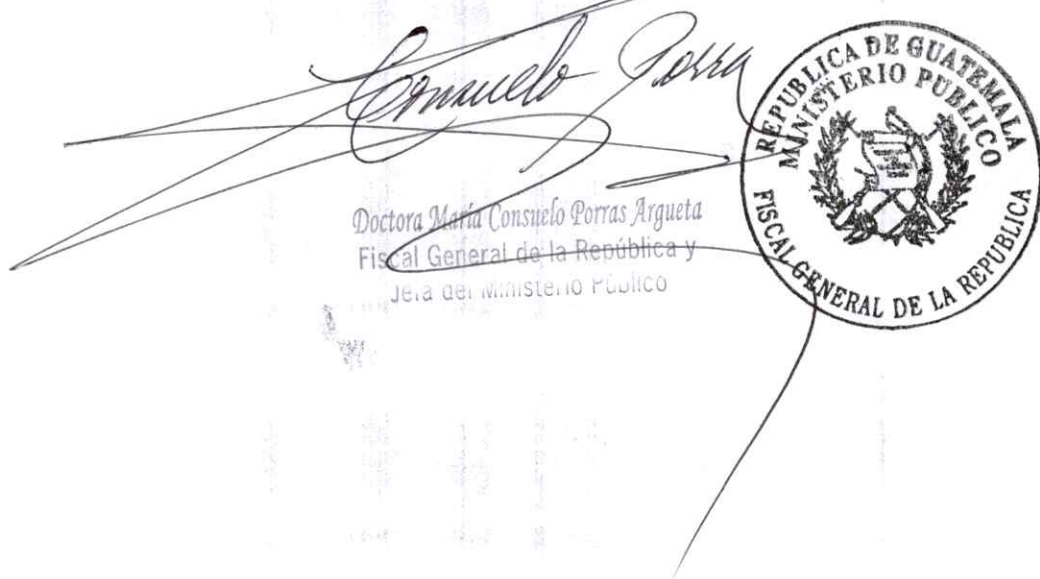 Consuelo Porras
Doctora María Consuelo Porras Argueta
Fiscal General de la República y
Jefa del Ministerio Público
REPUBLICA DE GUATEMALA
MINISTERIO PUBLICO
FISCAL GENERAL DE LA REPUBLICA